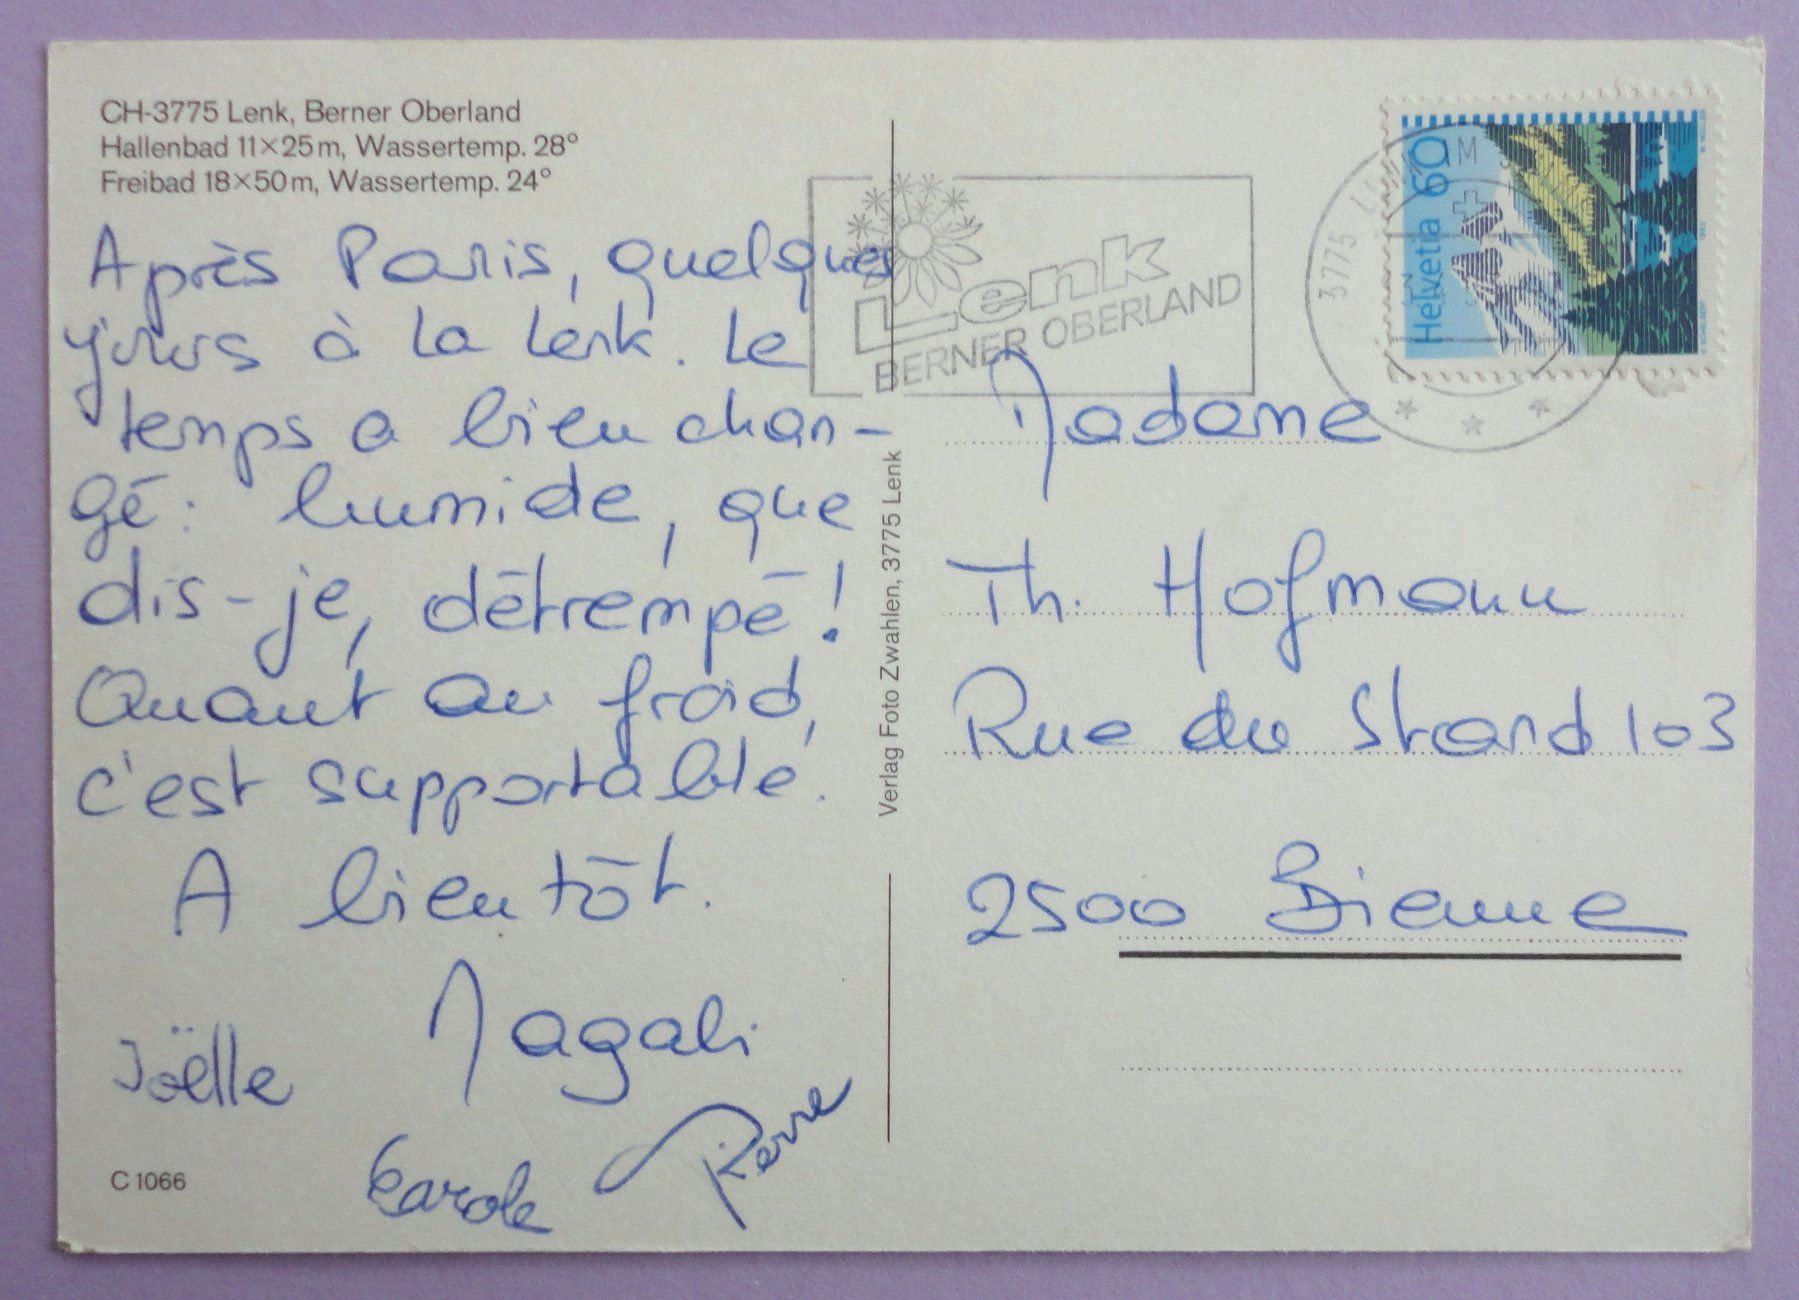 CH-3775 Lenk, Berner Oberland
Hallenbad 11×25m, Wassertemp. 28°
Freibad 18×50m, Wassertemp. 24°
Après Paris, quelques
jours à la Lenk. Le
temps a bien chan-
gé: humide, que
dis-je, détrempé!
Quant au froid,
c'est supportable.
A bientôt.
Magali
Joëlle
Carole
Pierre
C 1066
Verlag Foto Zwahlen, 3775 Lenk
Lenk
BERNER OBERLAND
3775
Helvetia 60
Madame
Th. Hofmann
Rue du Strand 103
2500 Bienne